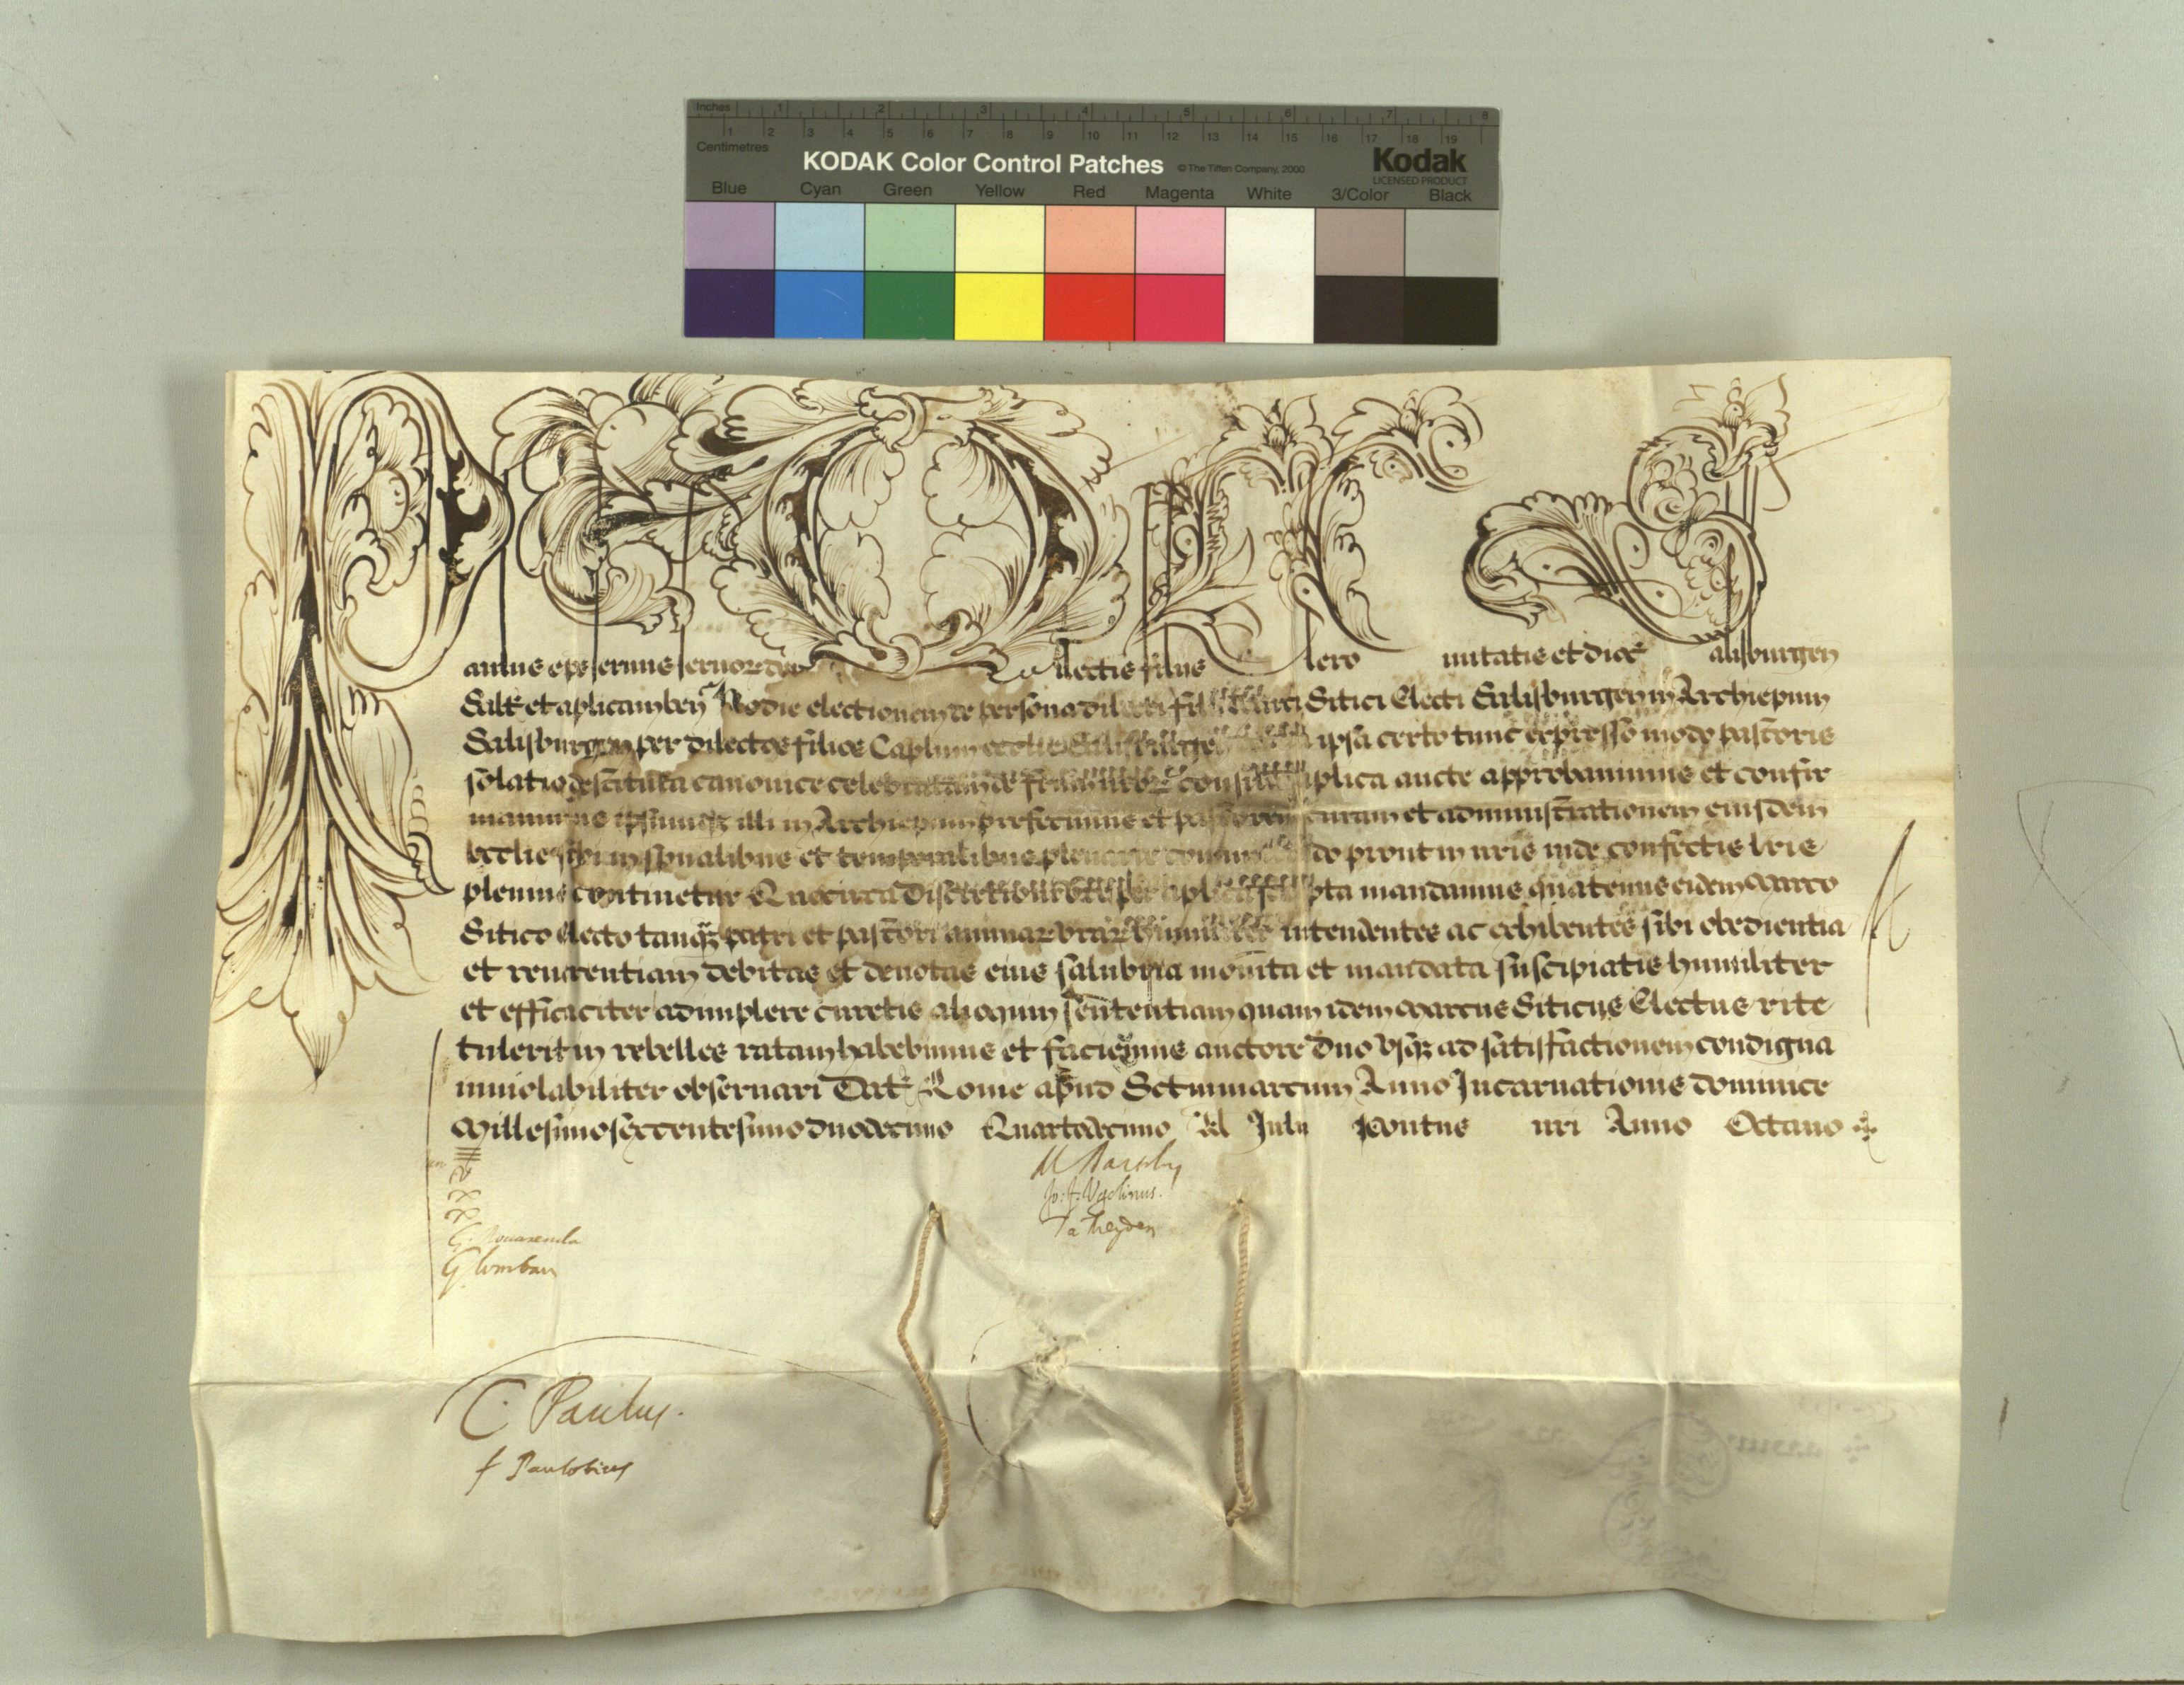 Inches 1 2 3 4 5 6 7 8
1 2 3 4 5 6 7 8 9 10 11 12 13 14 15 16 17 18 19
Centimetres
KODAK Color Control Patches © The Tiffen Company, 2000 Kodak
LICENSED PRODUCT
Blue Cyan Green Yellow Red Magenta White 3/Color Black
Paulus eps seruus seruor dei Dilectis filiis Clero Ciuitatis et dioc Salisburgen
Salt et aplicam ben Hodie electionem de persona dilecti filii Marci Sitici Electi Salisburgen in Archiepum
Salisburgen per dilectos filios Caplum ecclie ipsa certo tunc expresso modo pastoris
solatio destituta canonice celebratam de aplica aucte approbauimus et confir
mauimus ipsumqz illi in Archiepum prefecimus et pastorem curam et administrationem eiusdem
ecclie sibi in spualibus et temporalibus plenarie do prout in nris inde confectis lris
plenius continetur Quocirca pta mandamus quatenus eidem Marco
Sitico Electo tanqz patri et pastori animar vrar intendentes ac exhibentes sibi obedientia
et reuerentiam debitas et deuotas eius salubria monita et mandata suscipiatis humiliter
et efficaciter adimplere curetis alioquin sententiam quam idem Marcus Siticus Electus rite
tulerit in rebelles ratam habebimus et faciemus auctore dno vsqz ad satisfactionem condigna
inuiolabiliter obseruari Dat Rome apud Sctummarcum Anno Incarnationis dominice
Millesimosexcentesimoduodecimo Quartodecimo kl Julii Pontus nri Anno Octauo
G. Lomban
C. Paulus.